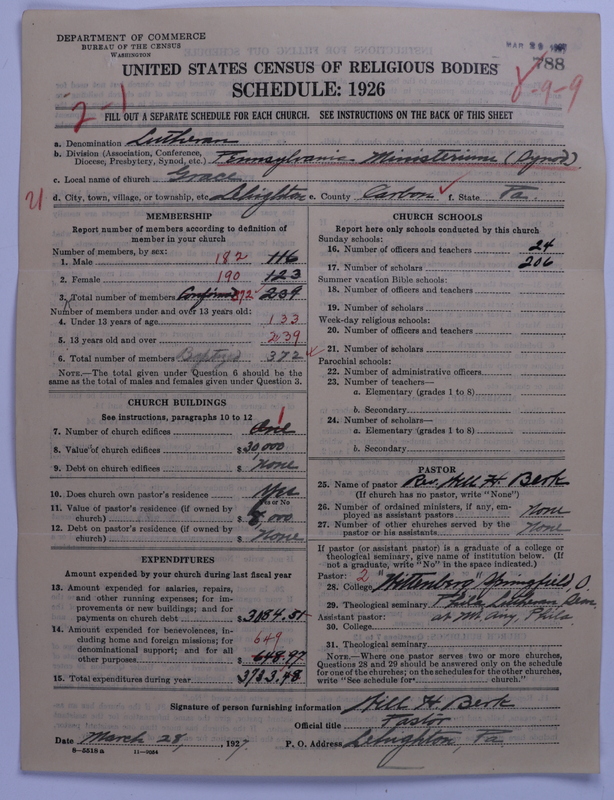 DEPARTMENT OF COMMERCE
BUREAU OF THE CENSUS
WASHINGTON
MAR 29
788
UNITED STATES CENSUS OF RELIGIOUS BODIES
SCHEDULE: 1926
8-9-9
2-1
FILL OUT A SEPARATE SCHEDULE FOR EACH CHURCH. SEE INSTRUCTIONS ON THE BACK OF THIS SHEET
a. Denomination Lutheran
b. Division (Association, Conference, Diocese, Presbytery, Synod, etc.) Pennsylvania Ministerium (Synod)
c. Local name of church Grace
21 d. City, town, village, or township, etc. Lehighton e. County Carbon f. State Pa.
MEMBERSHIP
Report number of members according to definition of
member in your church
Number of members, by sex:
1. Male 182 116
2. Female 190 123
3. Total number of members Confirmed 372 239
Number of members under and over 13 years old:
4. Under 13 years of age 133
5. 13 years old and over 239
6. Total number of members Baptized 372
NOTE.—The total given under Question 6 should be
same as the total of males and females given under Question 3.
CHURCH BUILDINGS
See instructions, paragraphs 10 to 12
7. Number of church edifices One 1
8. Value of church edifices $30,000
9. Debt on church edifices $ None
10. Does church own pastor's residence Yes
Yes or No
11. Value of pastor's residence (if owned by
church) $ 8,000
12. Debt on pastor's residence (if owned by
church) $ None
EXPENDITURES
Amount expended by your church during last fiscal year
13. For salaries, repairs,
and other running expenses; for im-
provements or new buildings; and for
payments on church debt $3084.51
14. Amount for benevolences, in-
cluding home and foreign missions; for
denominational support; and for all
other purposes 649 $648.97
15. Total expenditures during year $3733.48
CHURCH SCHOOLS
Report here only schools conducted by this church
Sunday schools:
16. Number of officers and teachers 24
17. Number of scholars 206
Summer vacation Bible schools:
18. Number of officers and teachers
19. Number of scholars
Week-day religious schools:
20. Number of officers and teachers
21. Number of scholars
Parochial schools:
22. Number of administrative officers
23. Number of teachers—
a. Elementary (grades 1 to 8)
b. Secondary
24. Number of scholars—
a. Elementary (grades 1 to 8)
b. Secondary
PASTOR
25. Name of pastor Rev. Hill H. Berk
(If church has no pastor, write "None")
26. Number of ordained ministers, if any, em-
ployed as assistant pastors None
27. Number of other churches served by the
pastor or his assistants None
If pastor (or assistant pastor) is a graduate of a college or
theological seminary, give name of institution below. (If
not a graduate, write "No" in the space indicated.)
Pastor: 2
28. College Wittenberg Springfield, O.
29. Theological seminary Phila Lutheran Sem.
Assistant pastor: at Mt. Airy, Phila
30. College
31. Theological seminary
NOTE.—Where one pastor serves two or more churches,
Questions 28 and 29 should be answered only on the schedule
for one of the churches; on the schedules for the other churches,
write "See schedule for church."
Signature of person furnishing information Hill H. Berk
Official title Pastor
Date March 28, 1927 P. O. Address Lehighton, Pa.
8-5518 a 11-9024